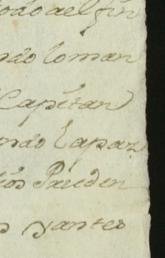 odo del fin
ndo loman
Capitan
ndo Lapaz
los Presiden
s y antes